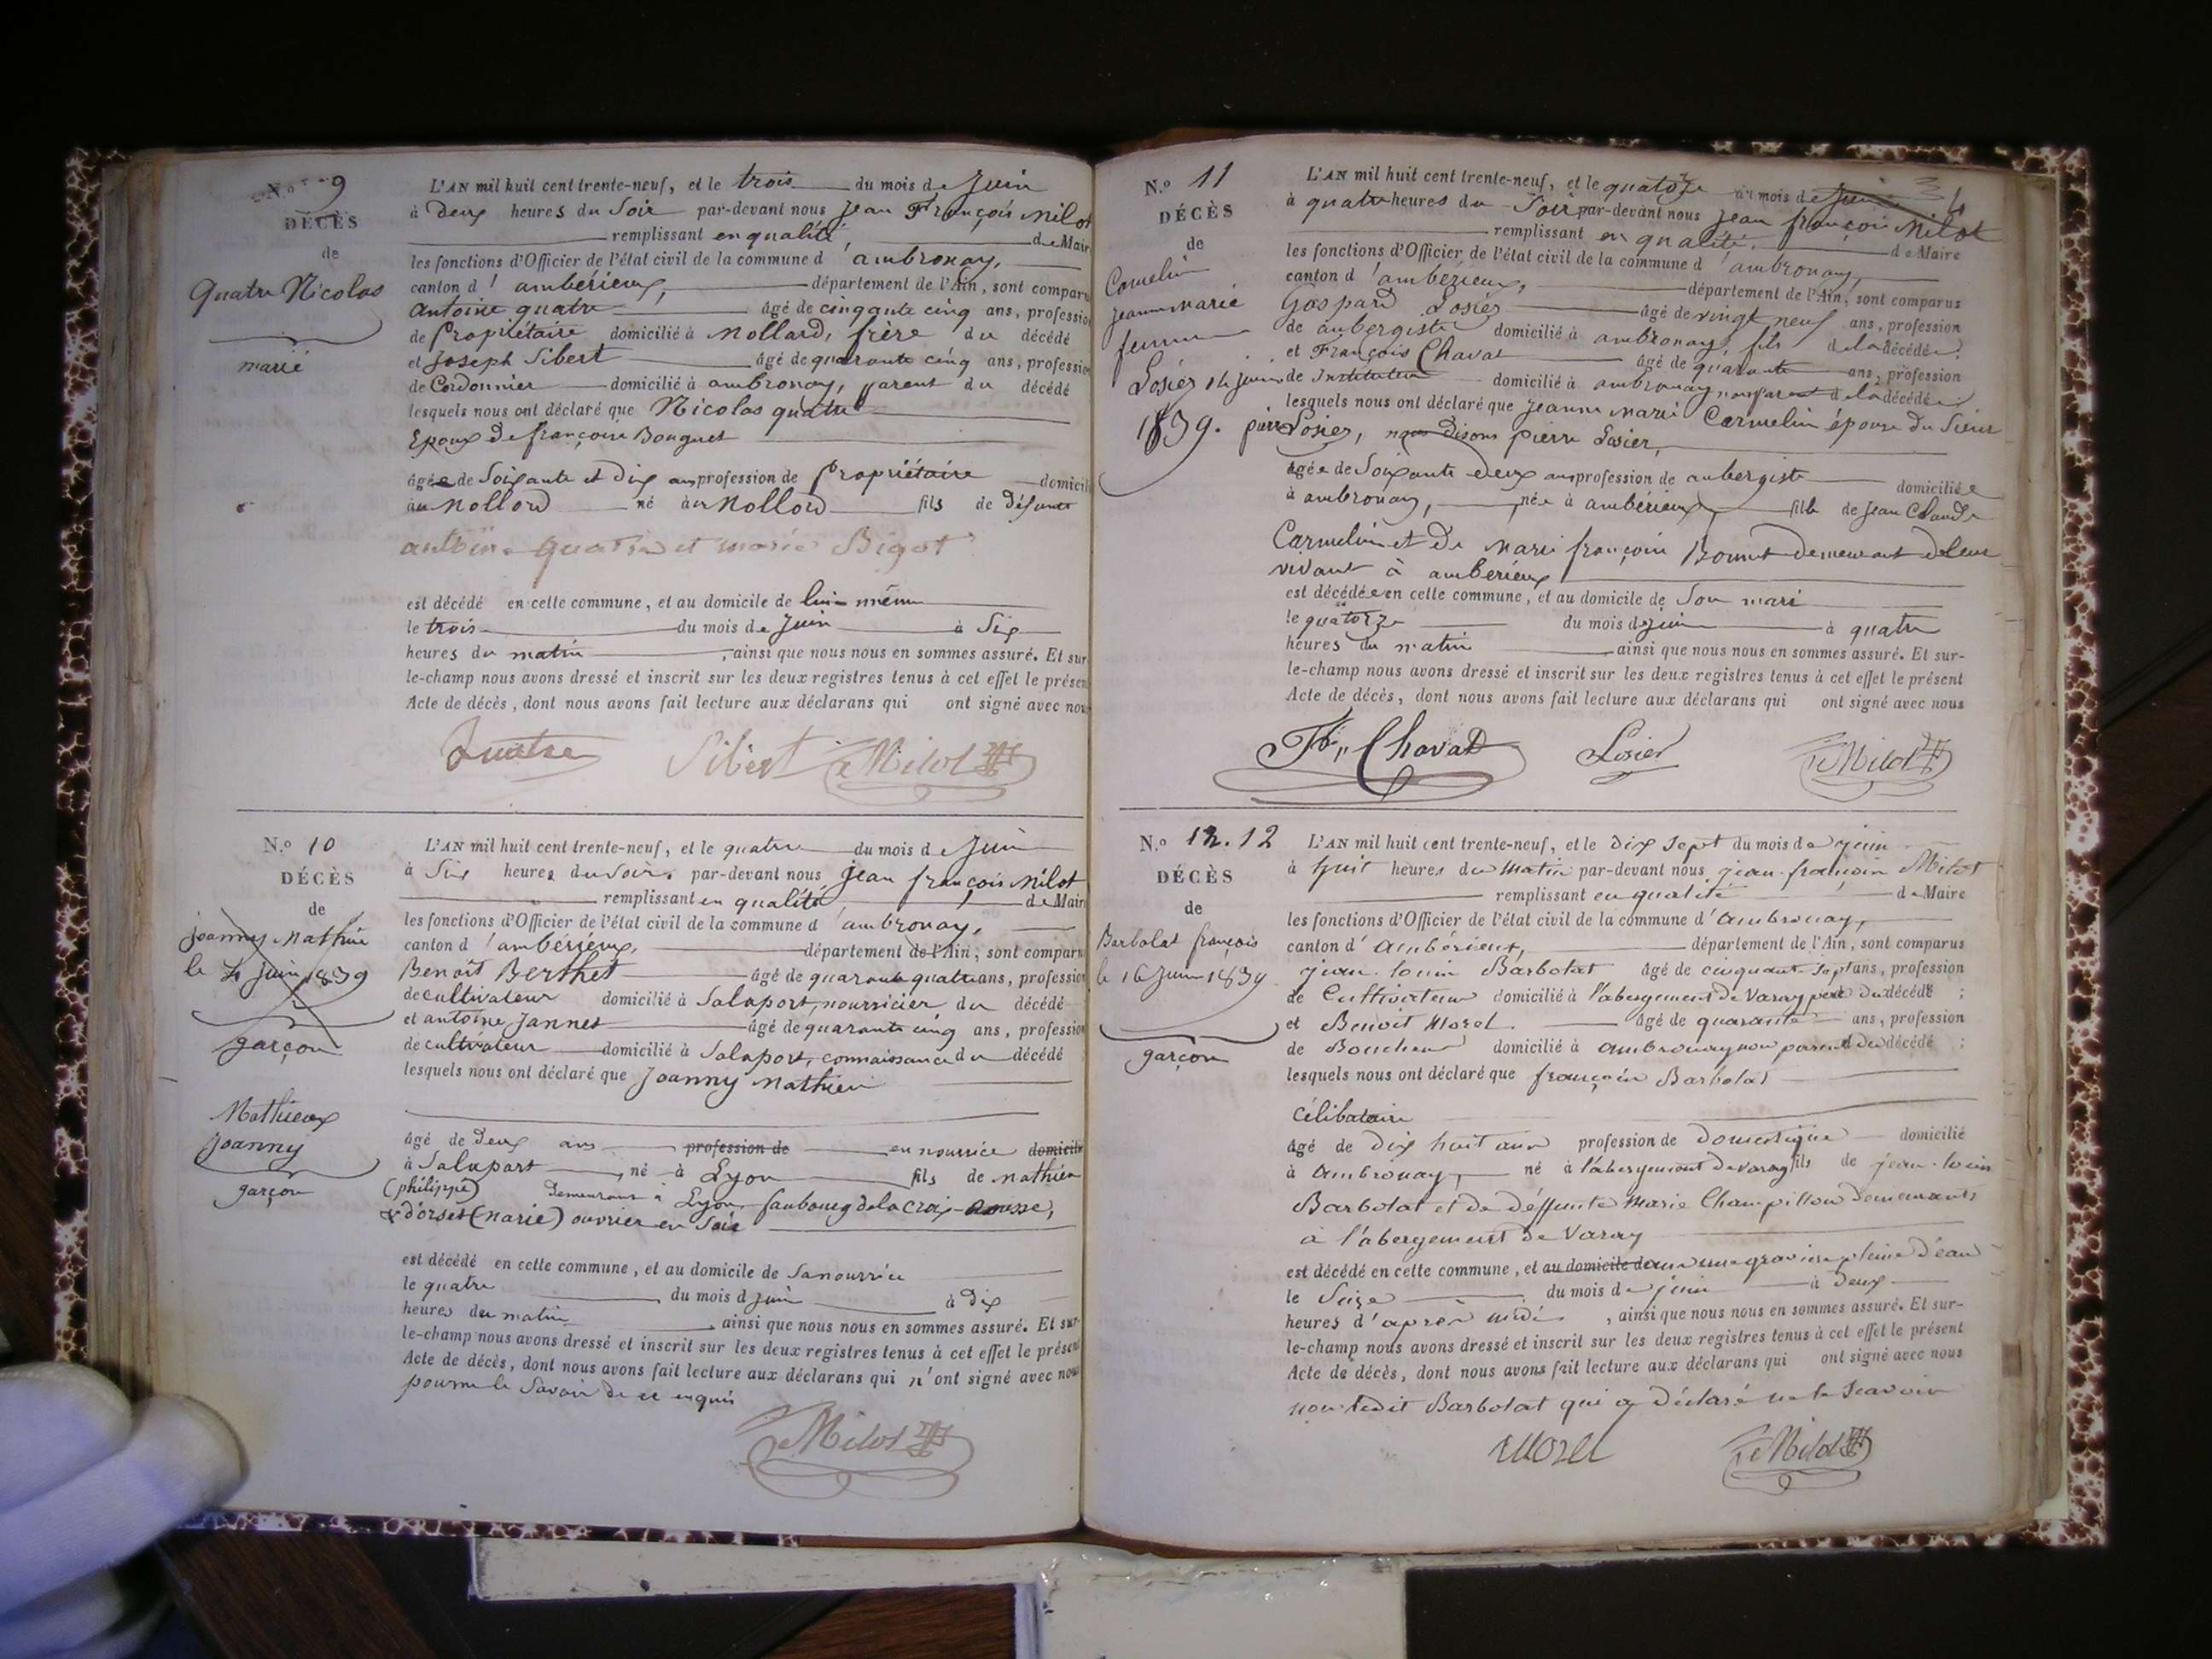 N.o 9
DÉCÈS
de
Quatre Nicolas
marié
L'AN mil huit cent trente-neuf, et le trois du mois de Juin
à Deux heures du Soir par-devant nous Jean François Milot
remplissant en qualité, de Mair
les fonctions d'Officier de l'état civil de la commune d'ambronay,
canton d'ambérieux, département de l'Ain, sont comparu
Antoine quatre âgé de cinqante cinq ans, profession
de Propriétaire domicilié à Mollard, frère du décédé
et Joseph Sibert âgé de quarante cinq ans, profession
de Cordonnier domicilié à ambronay, parent du décédé
lesquels nous ont déclaré que Nicolas quatre
Epoux de françoise Bouguet
âgé de Soixante et dix ans profession de Propriétaire domicil
au Mollard né au Mollard fils de défunts
antoine Quatre et marie Bigot
est décédé en cette commune, et au domicile de lui-même
le trois du mois de Juin à Six
heures du matin, ainsi que nous nous en sommes assuré. Et sur
le-champ nous avons dressé et inscrit sur les deux registres tenus à cet effet le présen
Acte de décès, dont nous avons fait lecture aux déclarans qui ont signé avec nou
Quatre Sibert Milot
N.o 10
DÉCÈS
de
Joanny Mathieu
le 4 juin 1839
garçon
Mathieux
Joanny
garçon
L'AN mil huit cent trente-neuf, et le quatre du mois de Juin
à Six heures du Soir, par-devant nous Jean françois Milot
remplissant en qualité, de Mair
les fonctions d'Officier de l'état civil de la commune d'ambronay,
canton d'ambérieux, département de l'Ain, sont comparu
Benoît Berthet âgé de quarante quatre ans, profession
de cultivateur domicilié à Salaport, nourricier du décédé
et antoine Jannet âgé de quarante cinq ans, profession
de cultivateur domicilié à Salaport, connaissance du décédé
lesquels nous ont déclaré que Joanny Mathieu
âgé de Deux ans profession de en nourrice domicile
à Salaport, né à Lyon fils de Mathieu
(philippe) Demeurant à Lyon, faubourg de la Croix-Rousse,
& dorset (marie) ouvrier en Soie
est décédé en cette commune, et au domicile de Sa nourrice
le quatre du mois d juin à dix
heures du matin, ainsi que nous nous en sommes assuré. Et sur-
le-champ nous avons dressé et inscrit sur les deux registres tenus à cet effet le présent
Acte de décès, dont nous avons fait lecture aux déclarans qui n'ont signé avec nous
pour ne le Savoir de ce enquis
Milot
N.o 11
DÉCÈS
de
Carmelin
Jeanne Marie
femme
Losier 14 juin
1839.
34
L'AN mil huit cent trente-neuf, et le quatorze du mois de Juin
à quatre heures du Soir par-devant nous Jean françois Milot
remplissant en qualité, de Maire
les fonctions d'Officier de l'état civil de la commune d'ambronay,
canton d'ambérieux, département de l'Ain, sont comparus
Gaspard Losier âgé de vingt neuf ans, profession
de aubergiste domicilié à ambronay, fils de la décédée;
et François Chavat âgé de quarante ans, profession
de Instituteur domicilié à ambronay non parent de la décédée;
lesquels nous ont déclaré que Jeanne Marie Carmelin épouse du Sieur
pierre Losier, nous disons pierre Losier,
âgée de Soixante deux ans profession de aubergiste domiciliée
à ambronay, née à ambérieux, fille de Jean Claude
Carmelin et de Marie françoise Bonnet demeurant de leur
vivant à ambérieux
est décédée en cette commune, et au domicile de Son mari
le quatorze du mois de juin à quatre
heures du matin ainsi que nous nous en sommes assuré. Et sur-
le-champ nous avons dressé et inscrit sur les deux registres tenus à cet effet le présent
Acte de décès, dont nous avons fait lecture aux déclarans qui ont signé avec nous
Chavat Losier Milot
N.o 12. 12
DÉCÈS
de
Barbolat françois
le 16 Juin 1839
garçon
L'AN mil huit cent trente-neuf, et le dix sept du mois de juin
à huit heures du Matin par-devant nous jean-françois Milot
remplissant en qualité de Maire
les fonctions d'Officier de l'état civil de la commune d'ambronay,
canton d'ambérieux, département de l'Ain, sont comparus
jean-louis Barbolat âgé de cinquant-sept ans, profession
de Cultivateur domicilié à l'abergement de Varey père du décédé;
et Benoit Morel. âgé de quarante ans, profession
de Boucher domicilié à ambronay non parent du décédé;
lesquels nous ont déclaré que françois Barbolat
célibataire
âgé de dix huit ans profession de domestique domicilié
à ambronay, né à l'abergement de varey fils de jean-louis
Barbolat et de déffunte Marie Champillon demeurants
à l'abergement de Varey
est décédé en cette commune, et au domicile dans une gravière pleine d'eau
le Seize du mois de juin à deux
heures d'après midi, ainsi que nous nous en sommes assuré. Et sur-
le-champ nous avons dressé et inscrit sur les deux registres tenus à cet effet le présent
Acte de décès, dont nous avons fait lecture aux déclarans qui ont signé avec nous
non ledit Barbolat qui a déclaré ne le scavoir
Morel Milot